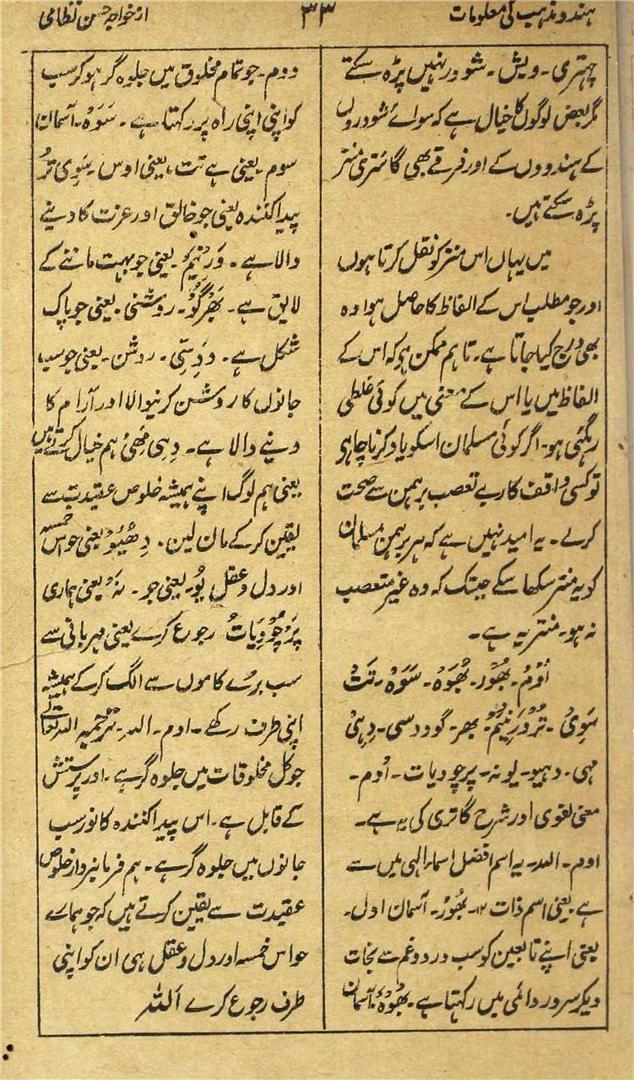 ہندو مذہب کی معلومات
۳۳
از خواجہ حسن نظامی
چہتری۔ ویش۔ شودر نہیں پڑہ سکتے
مگر بعض لوگوں کا خیال ہے کہ سوائے شودروں
کے ہندووں کے اور فرقے بھی گائتری منتر
پڑہ سکتے ہیں۔
میں یہاں اس منتر کو نقل کرتا ہوں
اور جو مطلب اس کے الفاظ کا حاصل ہوا وہ
بھی درج کیا جاتا ہے۔ تاہم ممکن ہے کہ اس کے
الفاظ میں یا اس کے معنی میں کوئی غلطی
رہ گئی ہو۔ اگر کوئی مسلمان اسکو یاد کرنا چاہی
تو کسی واقف کار بے تعصب برہمن سے صحت
کرلے۔ یہ امید نہیں ہے کہ ہر برہمن مسلمان
کو یہ منتر سکھا سکے جبتک کہ وہ غیر متعصب
نہ ہو۔ منتر یہ ہے۔
اُوْم۔ بھُوْر۔ بھُوَہْ۔ سَوَہْ۔ تَتْ
سَوِیْ۔ تُرْوَرَنیَمْ۔ بھر۔ گودوسی۔ دِہِیْ
مہی۔ دہیو۔ یونہ۔ پرچودیات۔ اُوم۔
معنی لغوی اور شرح گاتری کی یہ ہے۔
اوم۔ اللہ۔ یہ اسم افضل اسماء الٰہی میں سے
ہے یعنی اسم ذات ۱۲۔ بھُوْر۔ آسمان اول۔
یعنی اپنے تابعین کو سب درد و غم سے نجات
دیکر سرور دائمی میں رکہتا ہے۔ بھُوَہْ۔ آسمان
دوم۔ جو تمام مخلوق میں جلوہ گر ہو کر سب
کو اپنی اپنی راہ پر رکہتا ہے۔ سَوَہْ۔ آسمان
سوم۔ یعنی ہے تت، یعنی اوس۔ سَوِی تُرْ
پیدا کنندہ یعنی جو خالق اور عزت کا دینے
والا ہے۔ وَرَنیَمْ۔ یعنی جو بہت ماننے کے
لایق ہے۔ بَھَرْگُوْ۔ روشنی۔ یعنی جو پاک
شکل ہے۔ دَدِسِّی۔ روشن۔ یعنی جو سب
جانوں کا روشن کرنیوالا اور آرام کا
دینے والا ہے۔ دِہی مَھِیْ ہم خیال کرتے ہیں
یعنی ہم لوگ اپنے ہمیشہ خلوص عقیدت سے
یقین کر کے مان لین۔ دِھیُیُوْ یعنی حواس خمسہ
اور دل و عقل یُوْ۔ یعنی جو۔ نَہْ یعنی ہماری
پَرْچُوْدِیَاتْ رجوع کرے یعنی مہربانی سے
سب برے کاموں سے الگ کر کے ہمیشہ
اپنی طرف رکھے۔ اوم۔ اللہ۔ ترجمہ اللہ تعالیٰ
جو کل مخلوقات میں جلوہ گر ہے۔ اور پرستش
کے قابل ہے۔ اس پیدا کنندہ کا نور سب
جانوں میں جلوہ گر ہے۔ ہم فرمانبردار خلوص
عقیدت سے یقین کرتے ہیں کہ جو ہمارے
حواس خمسہ اور دل و عقل ہی ان کو اپنی
طرف رجوع کرے اللہ